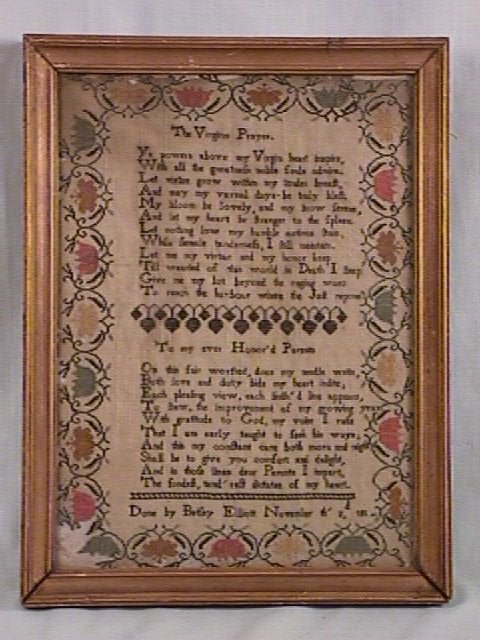 The Virgins Prayer.
Ye powers above my Virgin heart inspire,
With all the greatness noble Souls admire.
Let virtue grow within my tender breast,
And may my vernal days be truly blest,
My bloom be lovely, and my brow serene,
And let my heart be stranger to the Spleen.
Let nothing low my humble actions
While female tenderness, I still maintain.
Let me my virtue and my honor keep
Till wearied of this world in Death I sleep
Give me my lot beyond the raging waves
To reach the harbour where the Just
To my ever Honor'd Parents
On this fair worsted, does my needle write,
Both love and duty bids my heart indite,
Each pleasing view, each finish'd line appears,
To shew, the improvement of my growing years
With gratitude to God, my voice I raise
That I am early taught to seek his ways,
And this my constant care both morn and night
Shall be to give you comfort and delight,
And in those lines dear Parents I impart
The fondest, and dictates of my heart.
Done by Betsy Elliott November